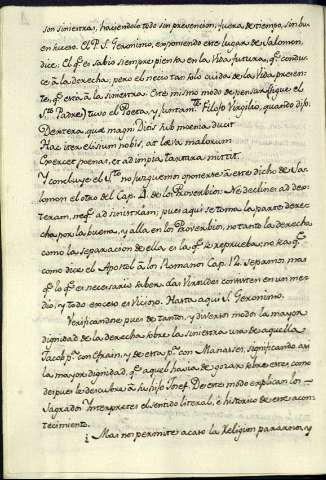 son siniestras, haziendolo todo sin prevencion, fuera de tiempo, sin bu
en suceso. El P. S. Geronimo, exponiendo este lugar de Salomon,
dice: El q.e es sabio siempre piensa en la Vida futura, q.e condu
ce à la derecha; pero el necio tan solo cuida de la Vida presen
te, q.e està à la siniestra. Este mismo modo de pensar (sigue el
S.to Padre) tuvo el Poeta, y juntam.te Filosofo Virgilio, quando dijo:
Dextera, quæ magni Ditis sub moenia ducit
Hac iter elisium nobis, at læva malorum
Exercet poenas, et ad impia tartara mittit.
Y concluye el S.to no juzguemos oponerse à este dicho de Sa-
lomon el otro del Cap. 4. de los Proverbios: Ne declines ad dex-
teram, neq.e ad sinistram; pues aqui se toma la parte derec
ha por la buena, y alla en los Proverbios, no tanto la derecha
como la separacion de ella es la q.e se reprueba: no sea q.e
como dice el Apostol à los Romanos Cap. 12. sepamos mas
q.e lo q.e es necesario saber: las Virtudes consisten en un me-
dio, y todo exceso es Vicioso. Hasta aqui S. Geronimo.
Verificandose pues de tantos, y diversos modos la mayor
dignidad de la derecha sobre la siniestra usa de aquella
Jacob p.a con Efrain, y de esta p.a con Manasses, significando asi
la mayor dignidad, q.e aquel havia de gozar sobre este; como
despues le descubre à su hijo Josef. De este modo explican los
Sagrados Interpretes el sentido literal, è historico de este acon
tecimiento.
¿Mas nos permite acaso la Religion pararnos, y